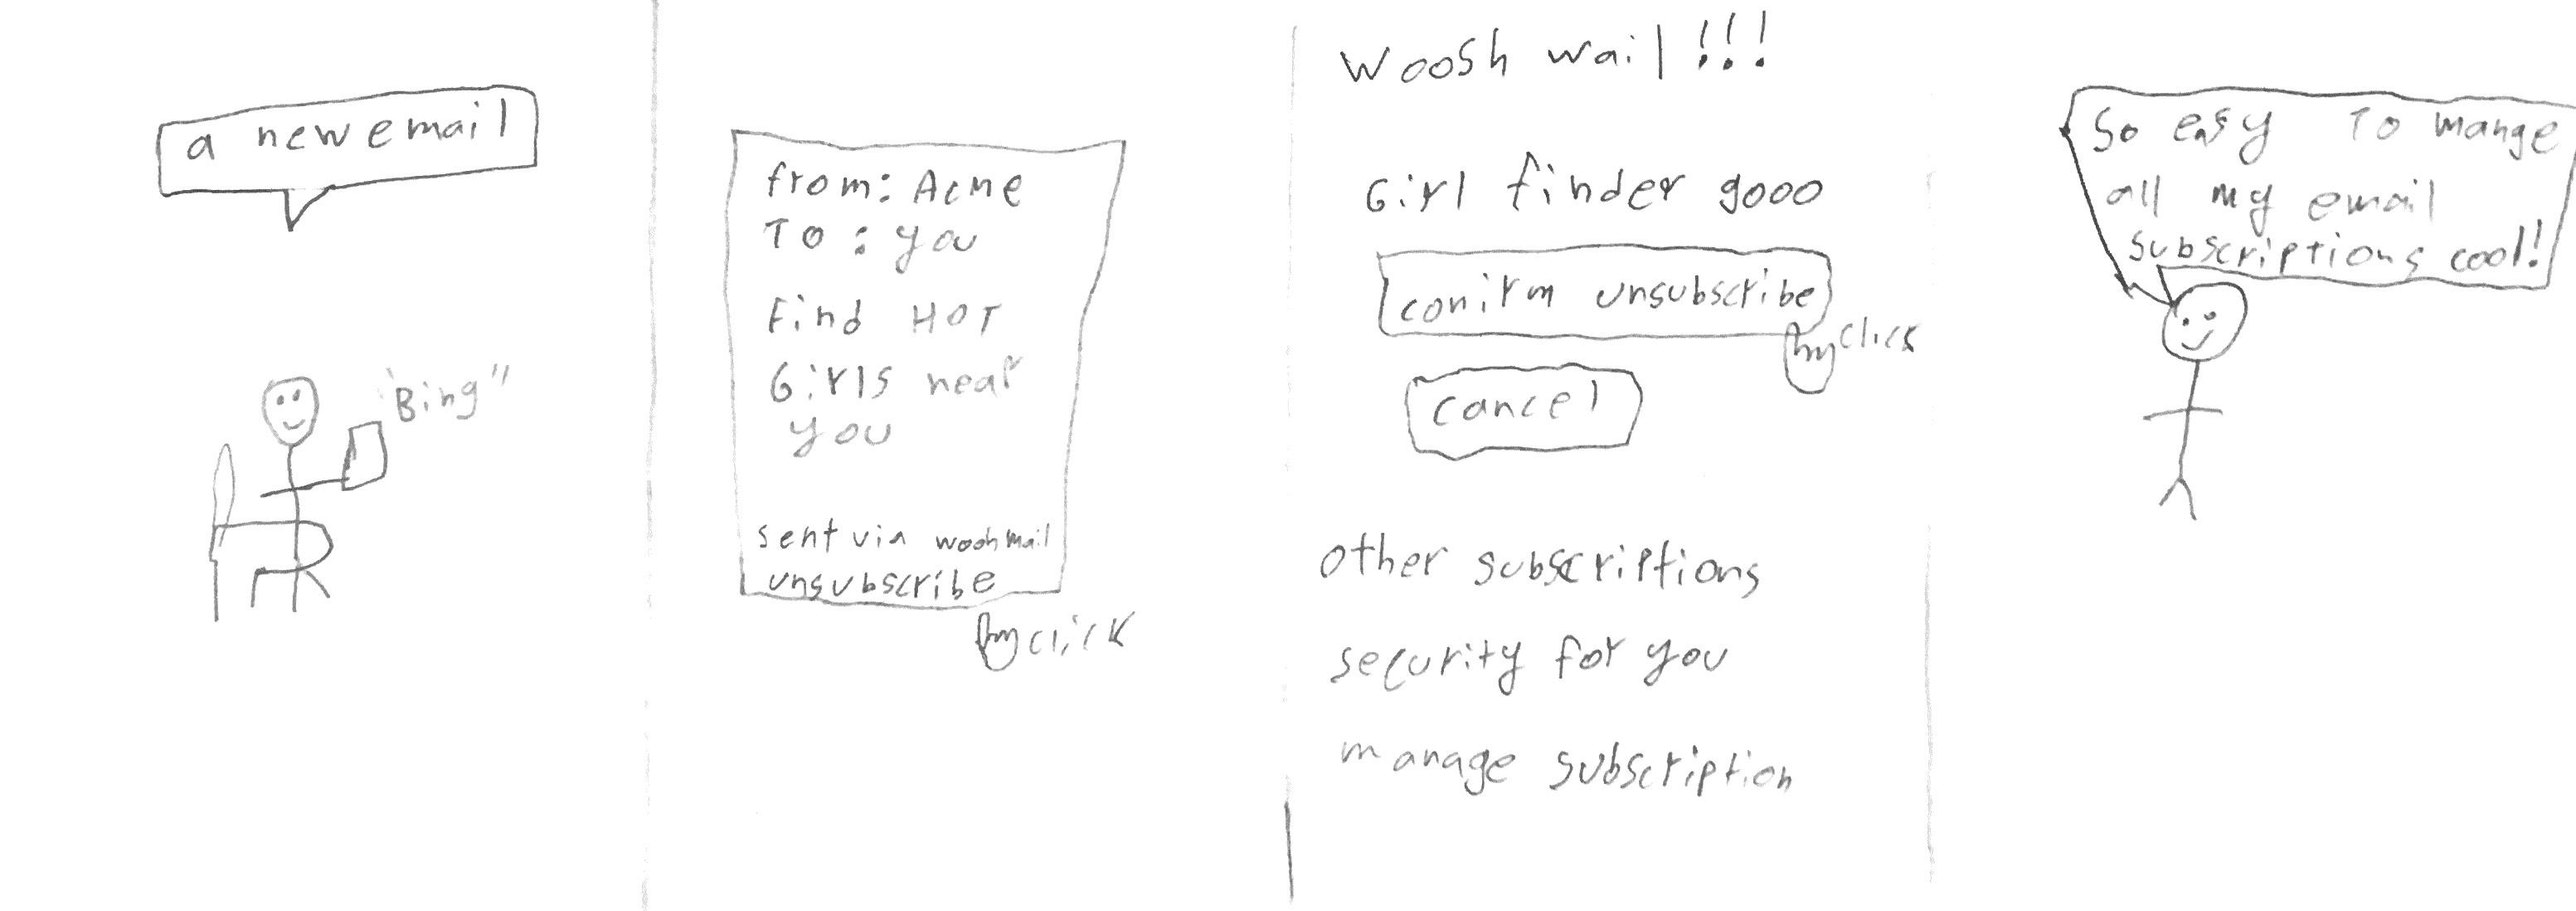 a new email
"Bing"
from: Acme
To: you
Find HOT
Girls near
you
sent via wooshmail
unsubscribe
click
Woosh wail!!!
Girl finder gooo
conirm unsubscribe
click
cancel
other subscriptions
security for you
manage subscription
So easy To mange
all my email
subscriptions cool!